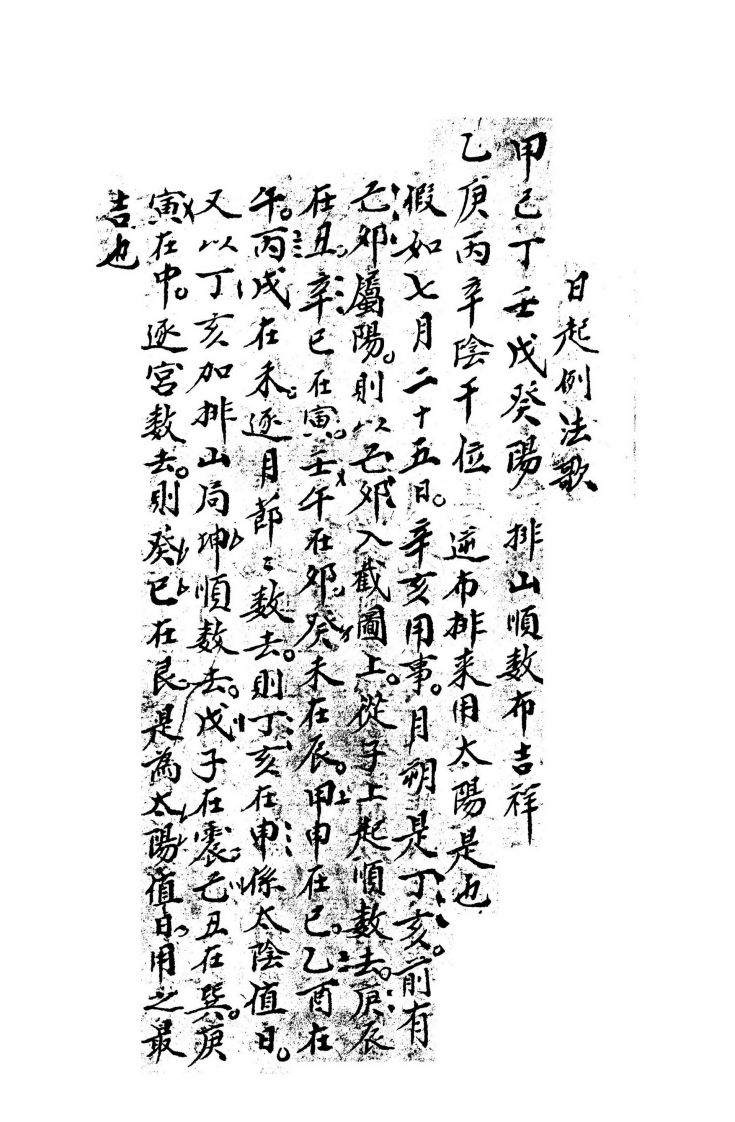 日起例法歌
甲己丁壬戊癸陽　排山順数布吉祥
乙庚丙辛陰干位　逆布排来用太陽是也
假如七月二十五日。辛亥用事。月朔是丁亥。前有
己卯屬陽。則以己卯入截圖上。從子上起順數去。庚辰
在丑。辛巳在寅。壬午在卯。癸未在辰。甲申在巳。乙酉在
午。丙戌在未。逐月節〻数去。則丁亥在申。係太陰值日。
又以丁亥加排山局坤順数去。戊子在震。己丑在巽。庚
寅在中。逐宮数去。則癸巳在艮。是為太陽值日。用之最
吉也